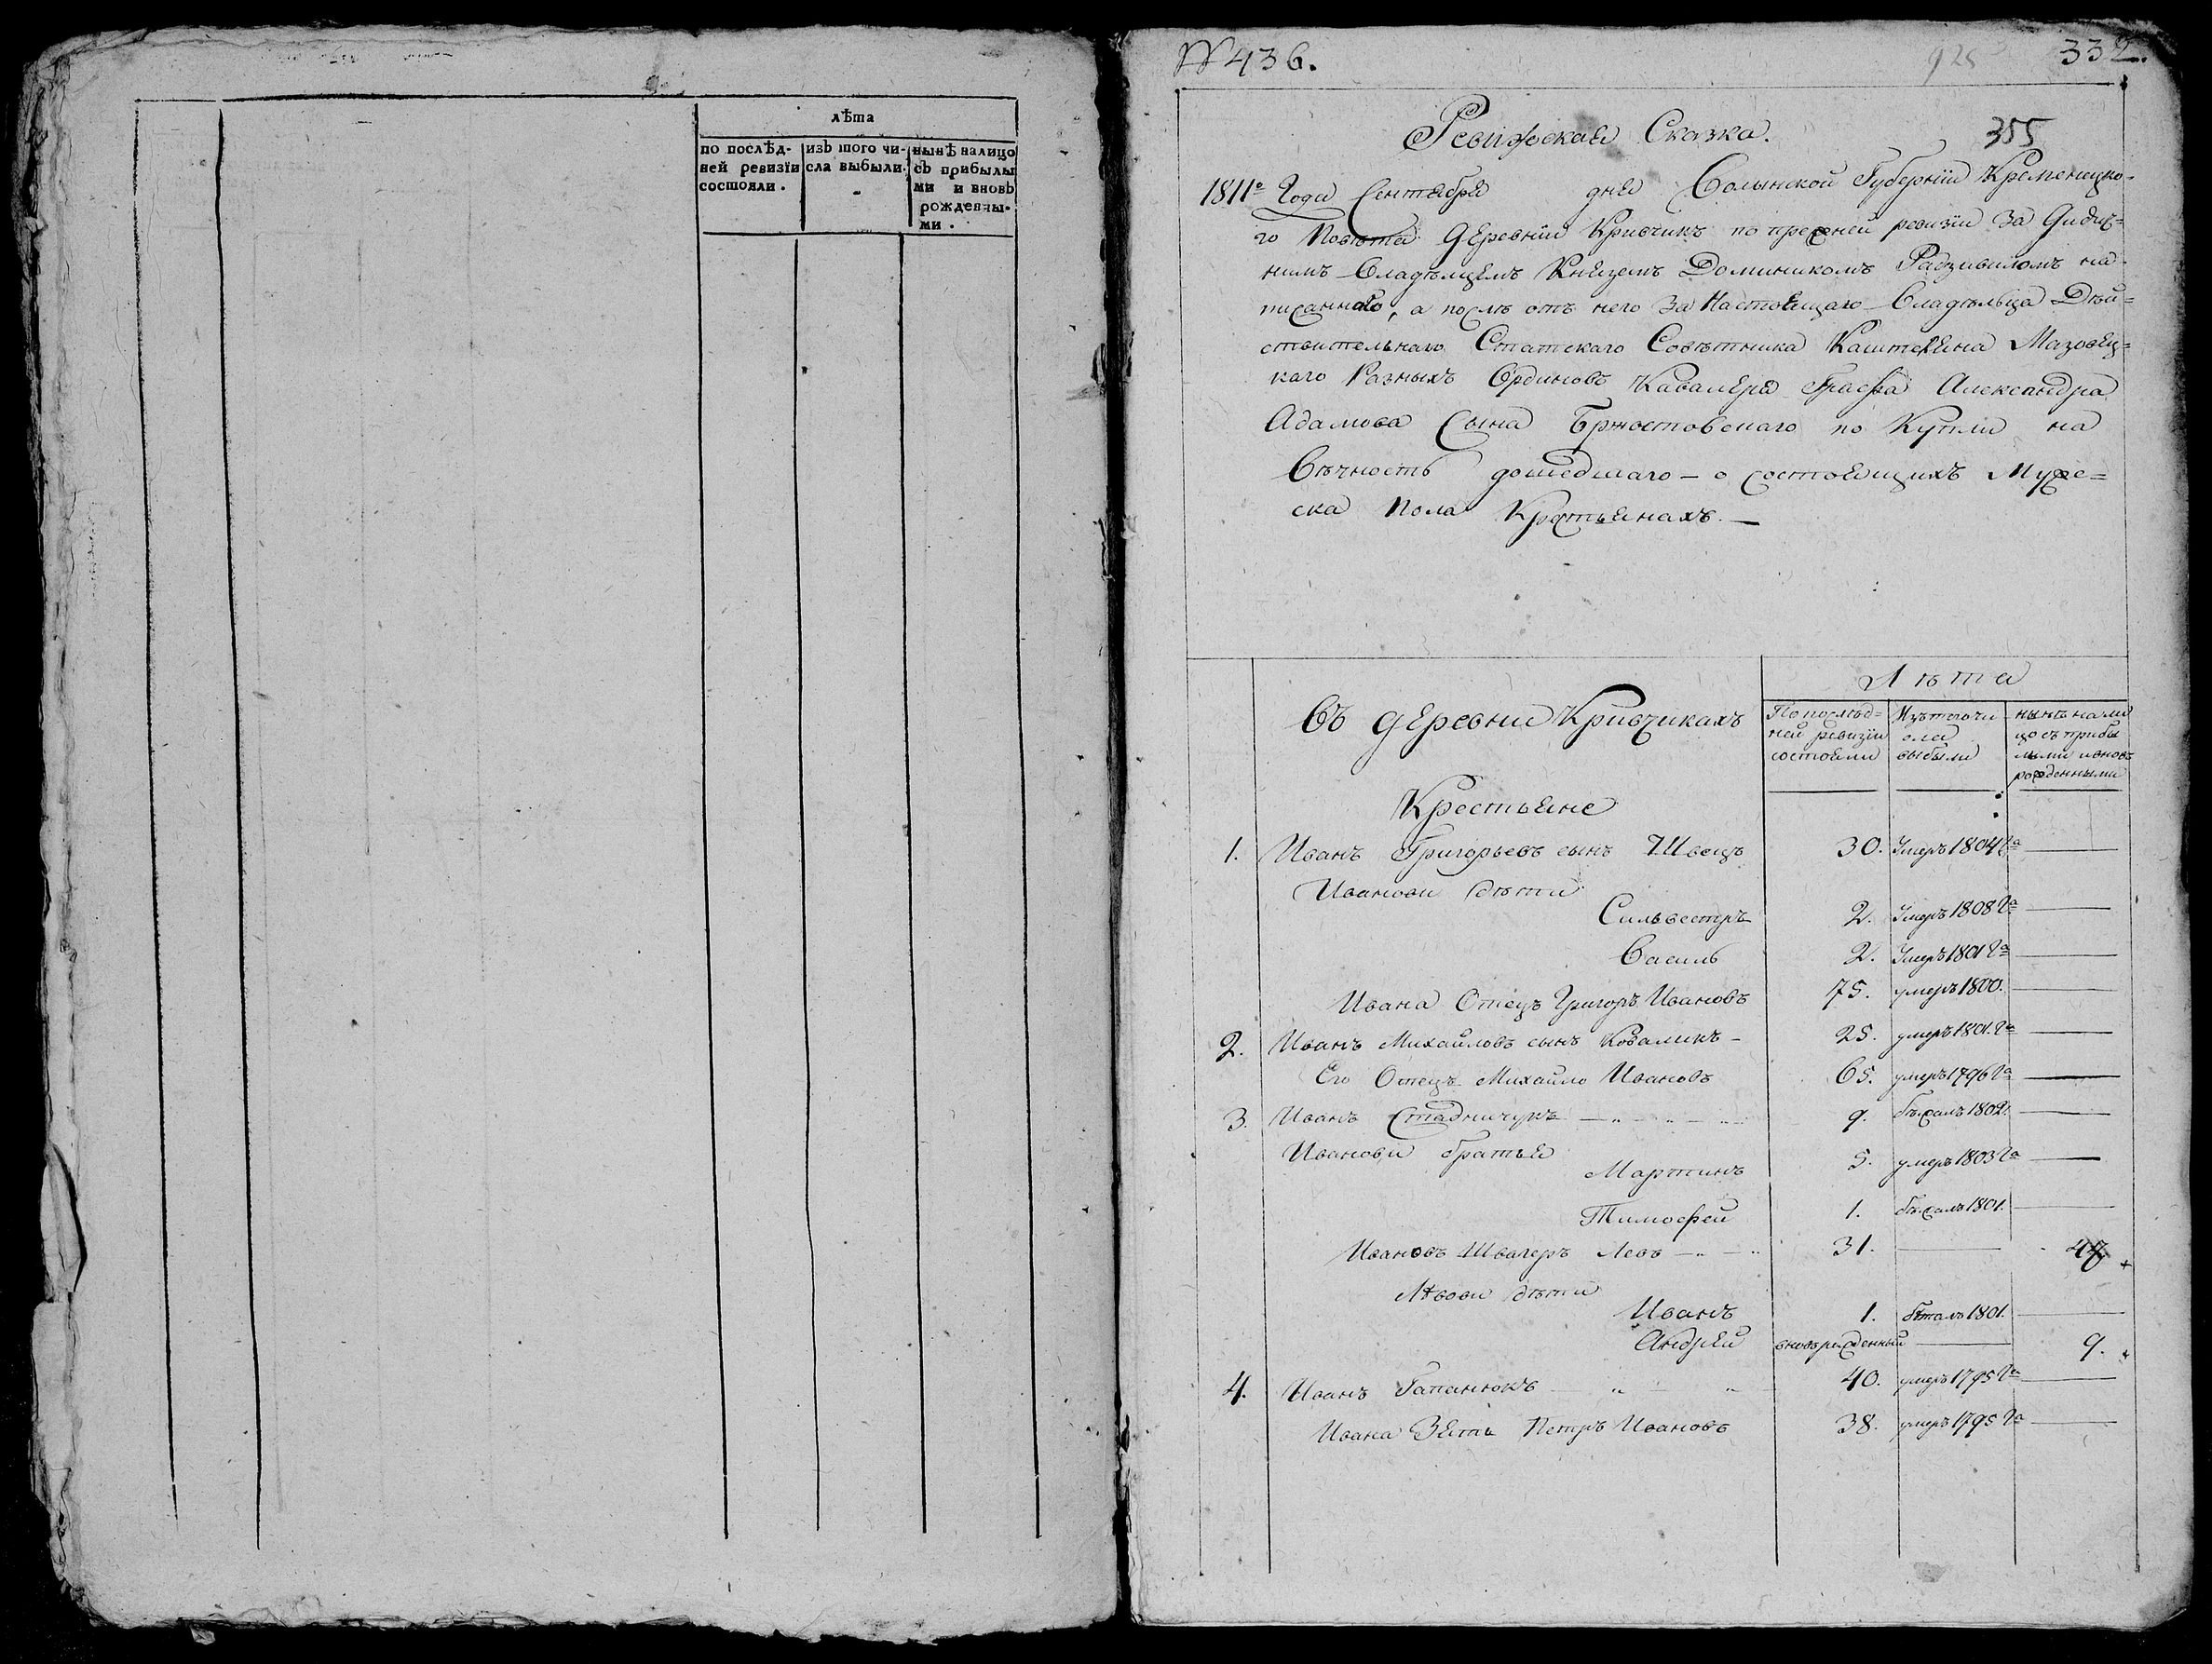 лѣта
по послѣд-
ней ревизіи
состояли.
изъ того чи-
сла выбыли.
нынѣ налицо
съ прибылы
ми и вновь
рожденны-
ми.
№ 436.
925
332.
Ревижская Сказка.
355
1811го Года Сентября дня Волынской Губерніи Кременицко-
го Повѣта Деревни Кривчикъ по прежней ревизіи За
нимъ Владѣлцемъ Княземъ Доминикомъ Радзивиломъ на-
писанного, а послѣ отъ него За Настоящаго Владѣльца Дѣй=
ствительнаго Статскаго Совѣтника Каштеляна Мазовец=
каго Разныхъ Ординовъ Кавалера Графа Александра
Адамова Сына Бржостовскаго по Купли на
Вѣчность дошедшаго – о состоящихъ Муже=
ска Пола Крестьянахъ. —
Въ деревни Кривчикахъ
Лѣта
По послѣд=
ней ревизіи
состояли
Изъ того чи
сла
выбыли
нынѣ нали
цо съ прибы
лыми и вновь
рожденными
Крестьяне
1. Иванъ Григорьевъ сынъ Швецъ 30. Умеръ 1804 га —
Иванови дѣти
Сильвестръ 2. Умеръ 1808 га —
Василь 2. Умеръ 1801 га —
Ивана Отецъ Григоръ Ивановъ 75. умеръ 1800. —
2. Иванъ Михайловъ сынъ Коваликъ – 25. умеръ 1801. га —
Его Отецъ Михайло Ивановъ 65. умеръ 1796 га —
3. Иванъ Стадничукъ — „ — „ — „ 9. бѣжалъ 1802. —
Иванови братья
Мартинъ 5. умеръ 1803 га —
Тимофей 1. бѣжалъ 1801. —
Ивановъ Швагеръ Левъ — „ — „ 31. — 48
Лвови дѣти
Иванъ 1. 1801. —
Андрей вновьрожденный — 9.
4. Иванъ Гапанюкъ „ „ 40. умеръ 1795 га —
Ивана Зять Петръ Ивановъ 38. умеръ 1795 га —